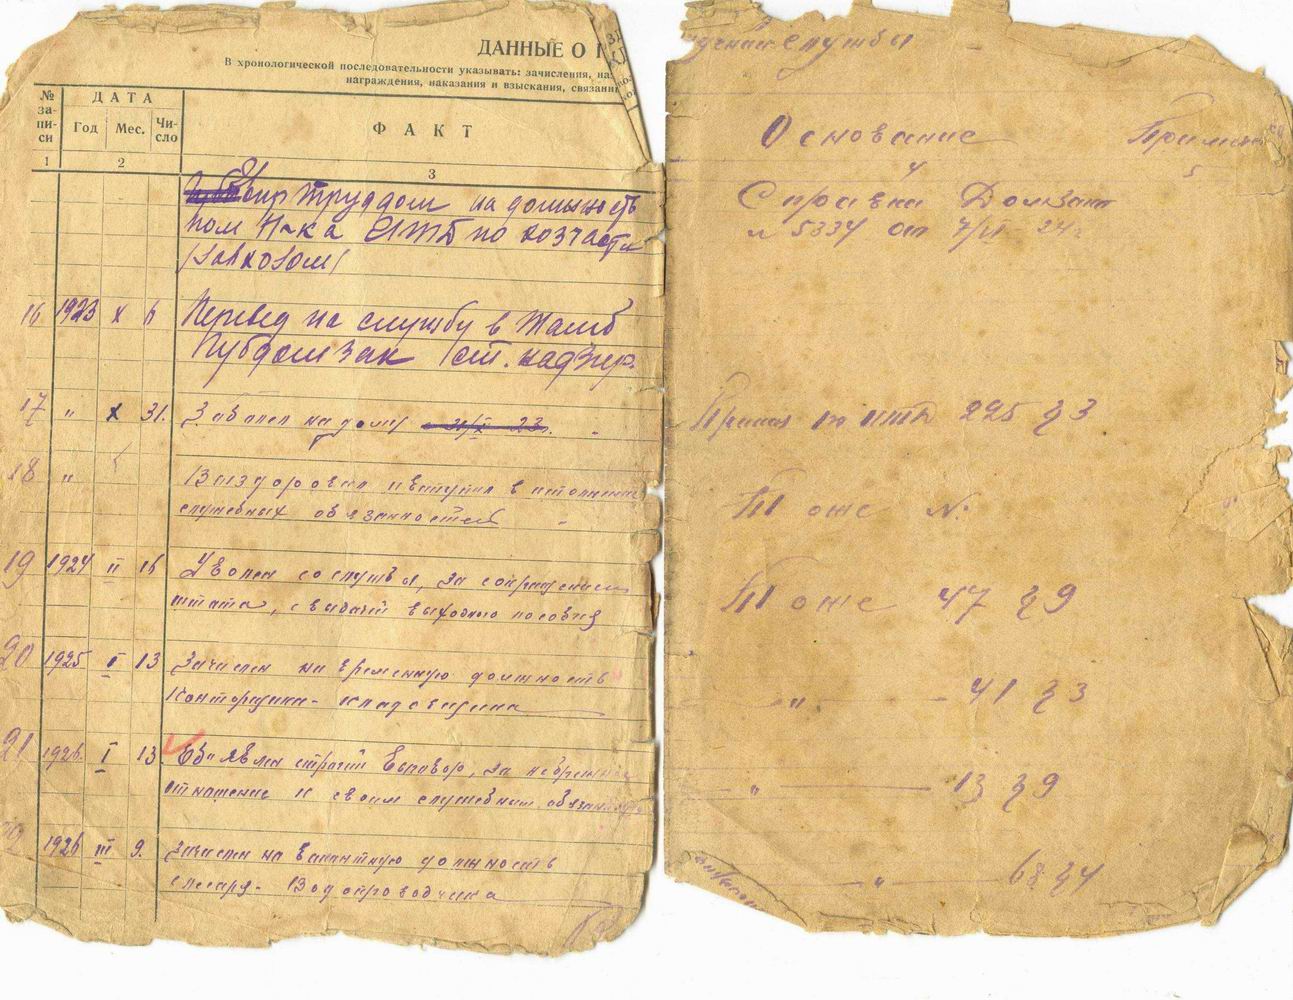 ДАННЫЕ О П
В хронологической последовательности указывать: зачисления, на
награждения, наказания и взыскания, связанн
№ за- пи- си
ДАТА
Год Мес. Чи- сло
ФАКТ
1 2 3
Труддом на должность
пом Н-ка по хозчасти
/завхозом/
16 1923 X 6 Перевед на службу в Тамб
Губдомзак /ст. надзир.
17 " X 31. Заболел на дому
18 " Выздоровел и вступил в исполнение
служебных обязанностей
19 1924 II 16 Уволен со службы, за сокращением
штата, с выдачей выходного пособия
20 1925 I 13 Зачислен на временную должность
Конторщика-кладовщика
21 1926. I 13 Об'явлен строгий выговор, за небрежное
отношение к своим служебным обязанность
1926 III 9. Зачислен на вакантную должность
слесаря-Водопроводчика
службы
Основание
4
5
Справка
№ 5334 от 7/VI 24г
Приказ по ИТД 295 §3
Тоже №
Тоже 47 §9
" - 41 §3
" 13 §9
" 68 §4